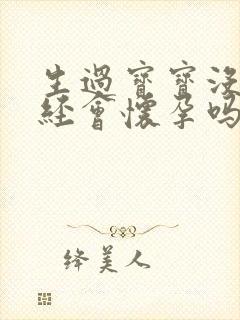 生過寶寶沒
經會懷孕嗎
绛美人